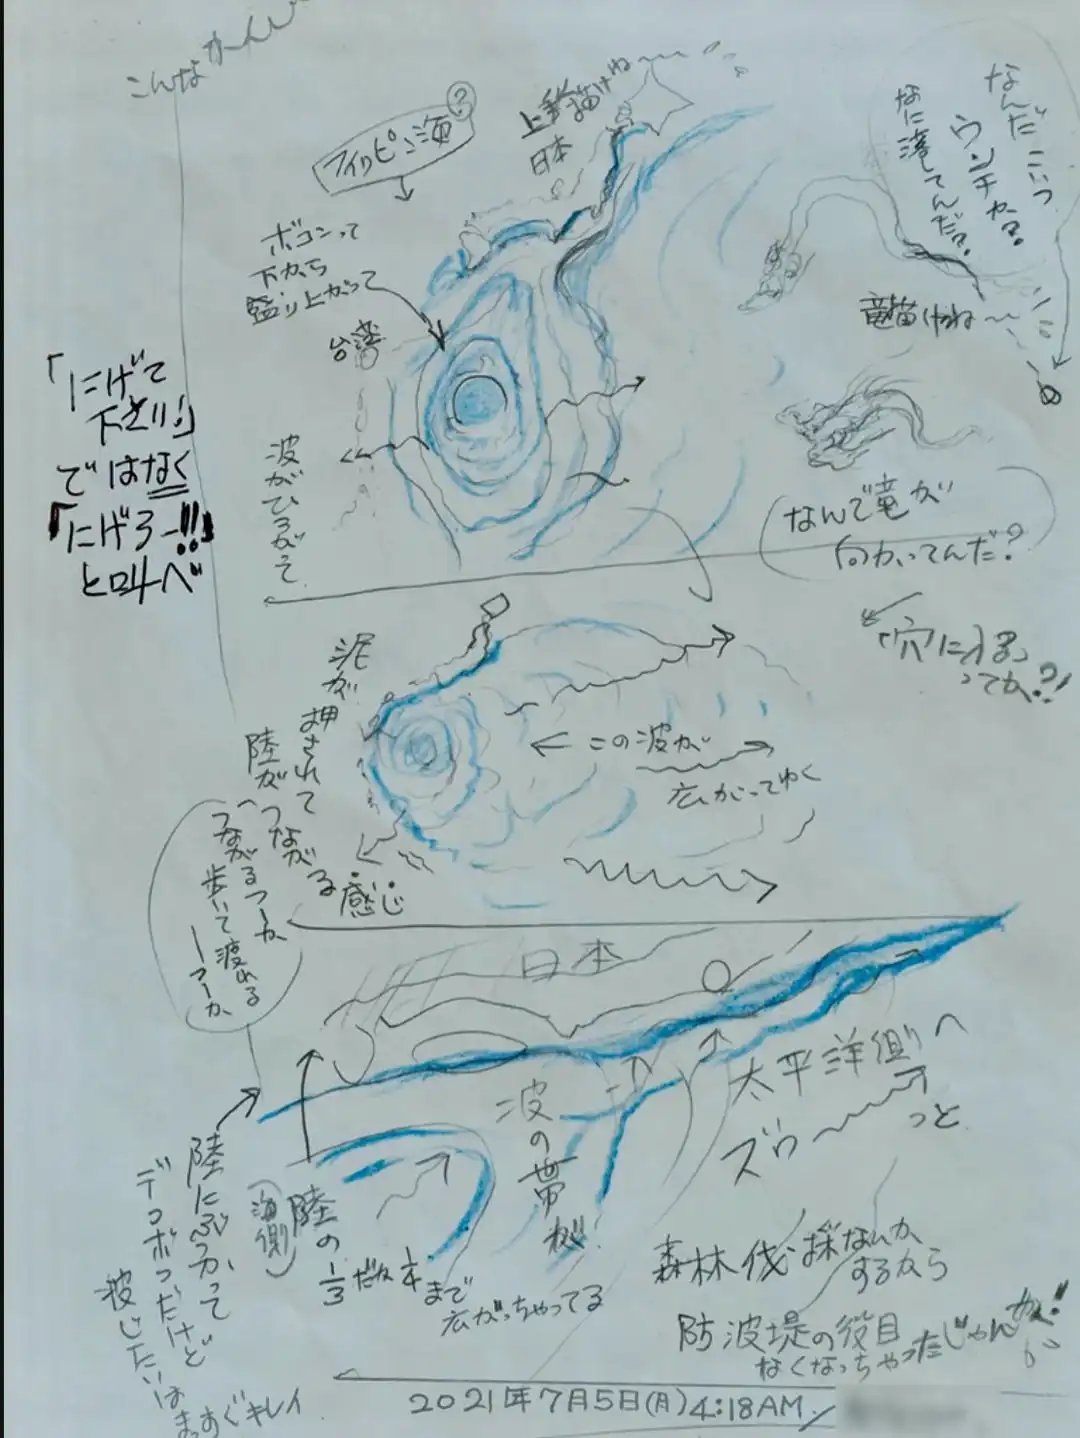 こんなかーんじ
フィリピン海?
上手く描けね〜
日本
なんだこいつ
ウンチか?
なに落してんだ?
ボコンって
下から
盛り上がって
台湾
竜描けねぇ〜
「にげて
下さい」
ではなく
「にげろー!!」
と叫べ
波がひろがって
なんで竜が
向かってんだ?
「穴に入る」
ってか?!
泥が押されて
陸がつながる
感じ
つながるつーか
歩いて渡れる
ーつーか
この波が
広がってゆく
日本
太平洋側へ
ズウ〜っと
波の帯が
陸にぶつかって
デコボコだけど
波じたいは
まっすぐキレイ
陸の
(海側)
1/3だね 1/4まで
広がっちゃってる
森林伐採なんか
するから
防波堤の役目
なくなっちゃったじゃんか!
2021年7月5日(月)4:18AM